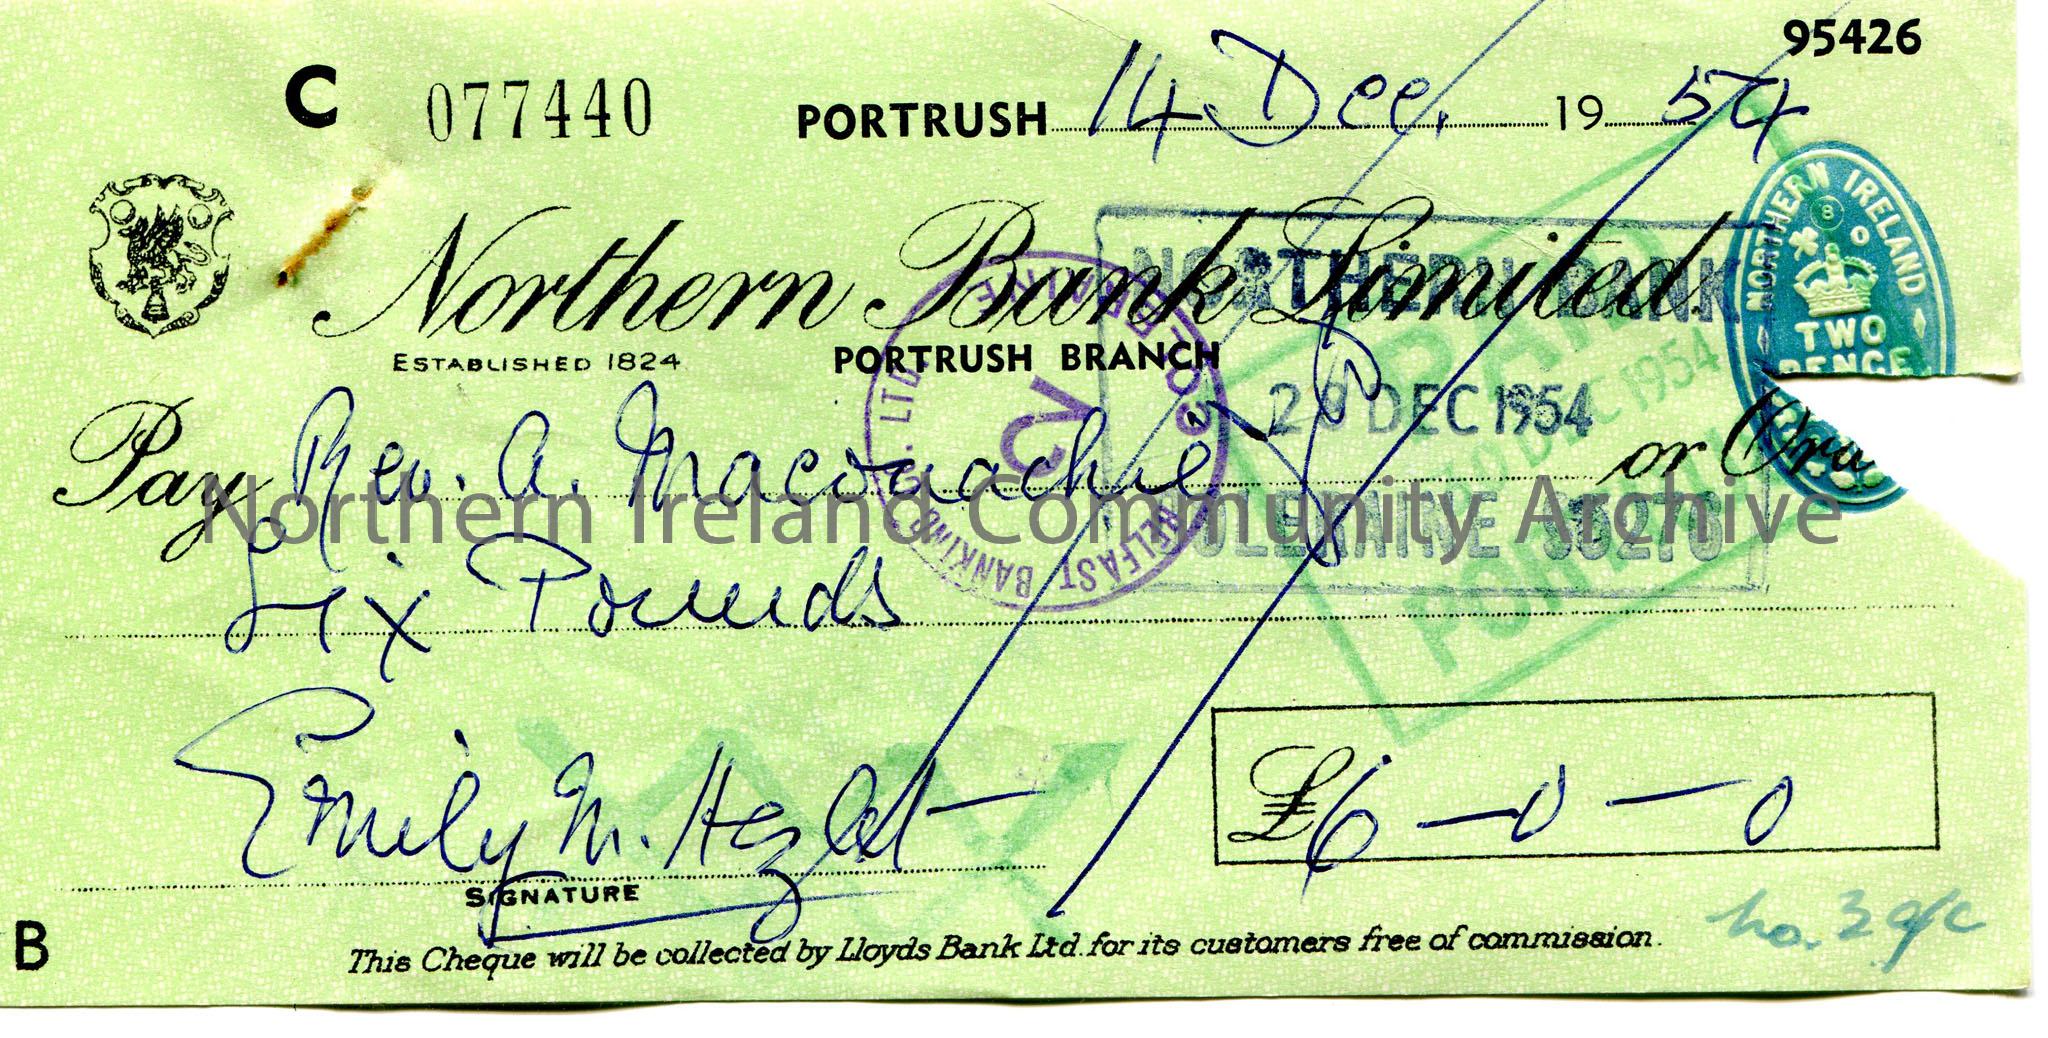 95426
C 077440 PORTRUSH 14 Dec. 19 54
Northern Bank Limited.
ESTABLISHED 1824
PORTRUSH BRANCH
NORTHERN IRELAND
8
TWO
PENCE
NORTHERN BANK
DEC 1954
COLERAINE
DEC 1954
BELFAST BANKING CO. LTD.
COLERAINE
Pay Rev. A. Maconachie or Orde
Six Pounds
Emily M. Hezlet
£6-0-0
SIGNATURE
no. 3 a/c
B
This Cheque will be collected by Lloyds Bank Ltd. for its customers free of commission.
Northern Ireland Community Archive